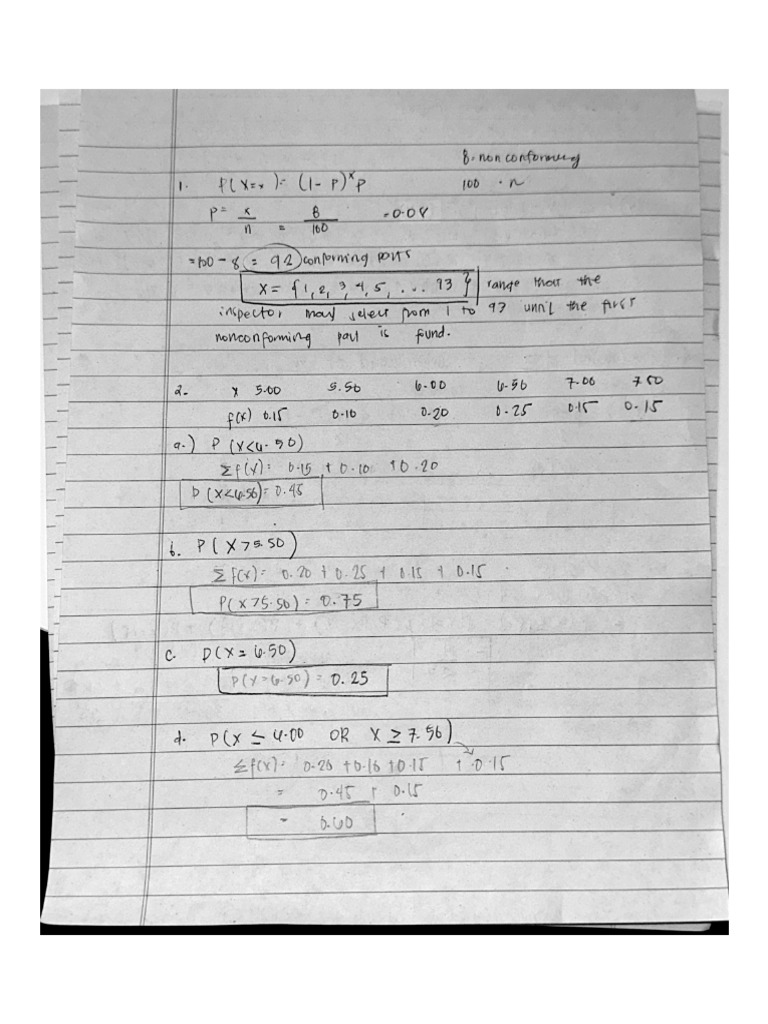 8 · nonconforming
1. P(X=x) = (1-p)^x p 100 · n
P = x/n = 8/100 = 0.08
= 100 - 8 = 92 conforming parts
X = {1, 2, 3, 4, 5, ... 93} range that the
inspector may select from 1 to 93 until the first
nonconforming part is fund.
2. x 5.00 5.50 6.00 6.50 7.00 7.50
f(x) 0.15 0.10 0.20 0.25 0.15 0.15
a.) P (X<6.50)
Σf(x) = 0.15 + 0.10 + 0.20
P(X<6.50) = 0.45
b. P(X>5.50)
Σf(x) = 0.20 + 0.25 + 0.15 + 0.15
P(X>5.50) = 0.75
c. P(X = 6.50)
P(X=6.50) = 0.25
d. P(X ≤ 6.00 OR X ≥ 7.50)
Σf(x) = 0.20 + 0.10 + 0.15 + 0.15
= 0.45 + 0.15
= 0.60